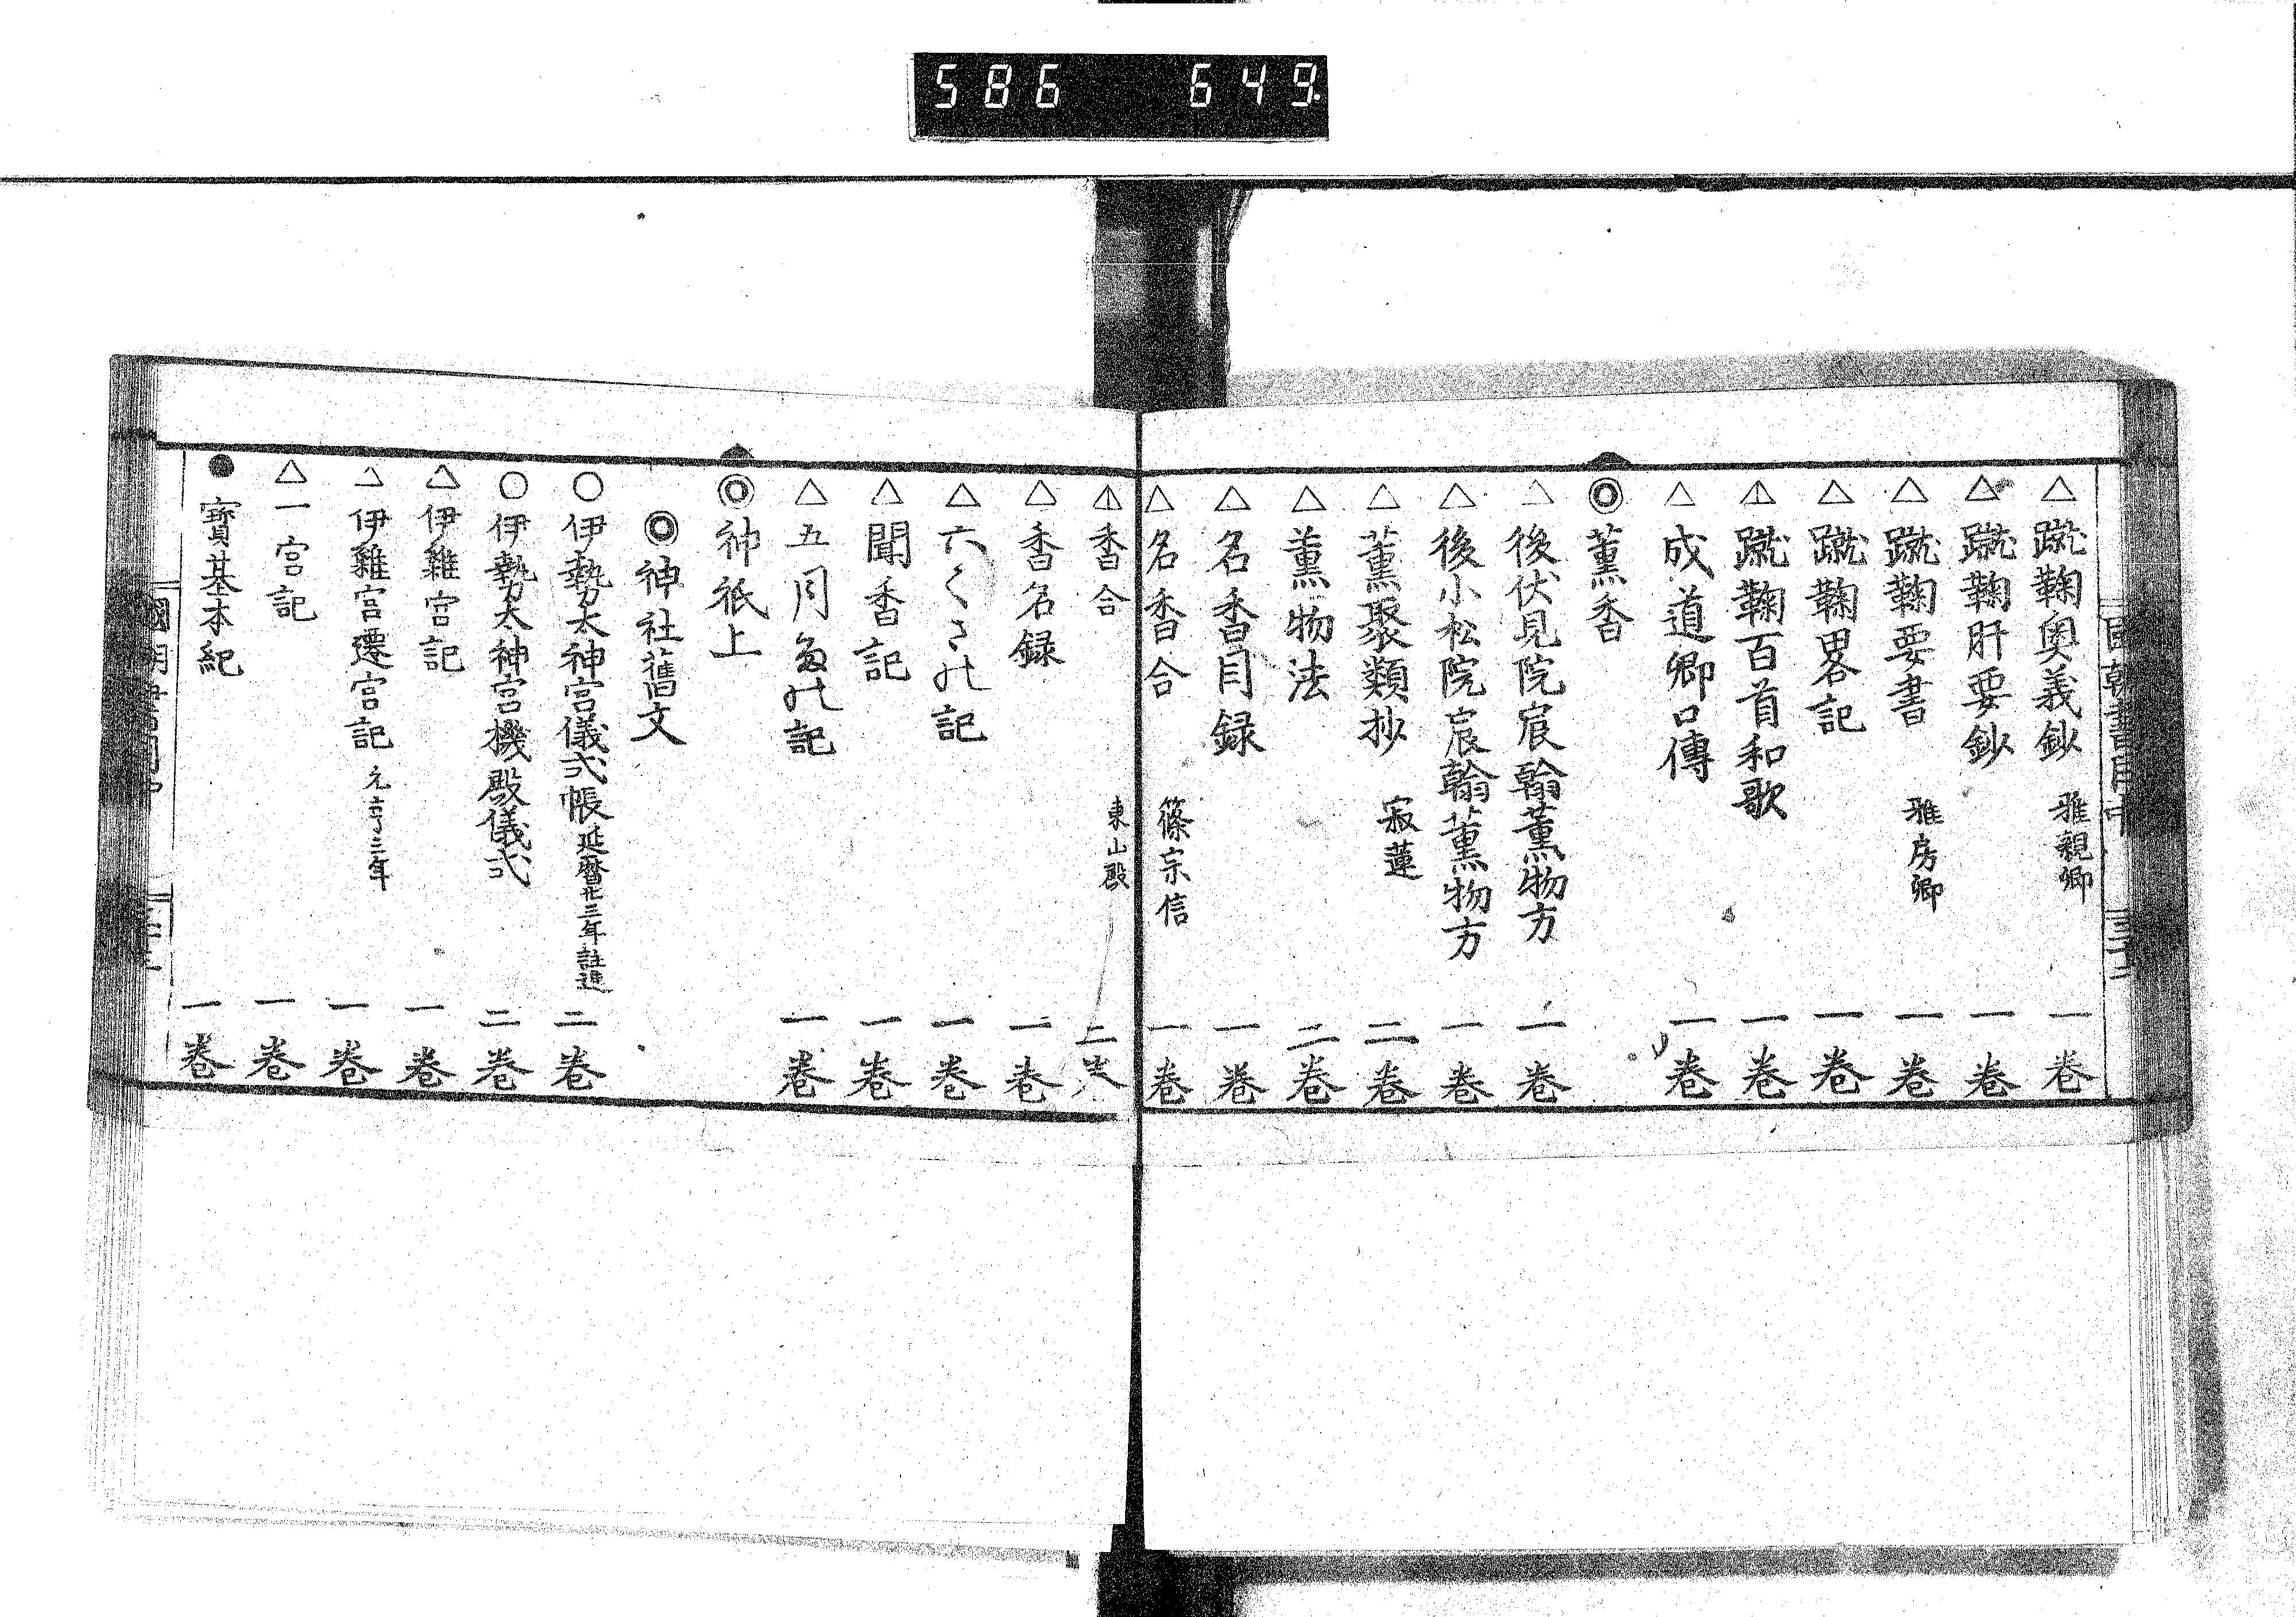 586 649
國朝書目中
△蹴鞠奥義鈔 雅親卿 一卷
△蹴鞠肝要鈔 一卷
△蹴鞠要書 雅房卿 一卷
△蹴鞠畧記 一卷
△蹴鞠百首和歌 一卷
△成道卿口傳 一卷
◎薫香
△後伏見院宸翰薫物方 一卷
△後小松院宸翰薫物方 一卷
△薫聚類抄 寂蓮 二卷
△薫物法 二卷
△名香目録 一卷
△名香合 篠宗信 一卷
△香合 東山殿 二卷
△香名録 一卷
△六くさの記 一卷
△聞香記 一卷
△五月雨の記 一卷
◎神祇上
◎神社舊文
○伊勢太神宮儀式帳 延暦廿三年註進 二卷
○伊勢太神宮機殿儀式 二卷
△伊雜宮記 一卷
△伊雜宮遷宮記 元亨三年 一卷
△一宮記 一卷
●寶基本紀 一卷